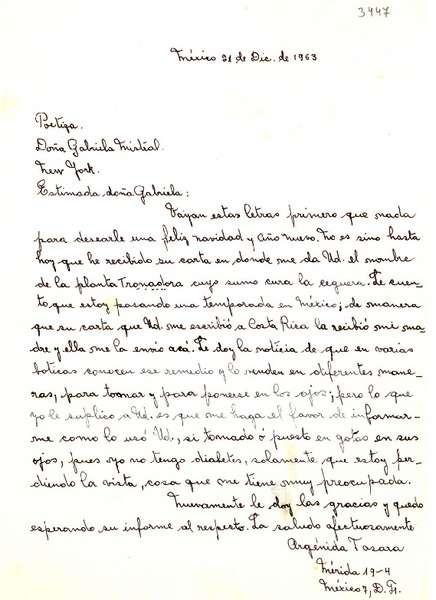 3447
México 21 de Dic. de 1953
Poetiza.
Doña Gabriela Mistral.
New York.
Estimada doña Gabriela:
Vayan estas letras primero que nada
para desearle una feliz navidad y año nuevo. No es sino hasta
hoy que he recibido su carta en donde me da Ud. el nombre
de la planta Tronadora cuyo sumo cura la ceguera. Le cuen-
to que estoy pasando una temporada en México; de manera
que su carta que Ud. me escribió a Costa Rica la recibió mi ma-
dre y ella me la envió acá. Le doy la noticia de que en varias
boticas conocen ese remedio y lo venden en diferentes mane-
ras, para tomar y para ponerse en los ojos; pero lo que
yo le suplico a Ud. es que me haga el favor de informar-
me como lo usó Ud., si tomado o puesto en gotas en sus
ojos, pues yo no tengo diabetes, solamente que estoy per-
diendo la vista, cosa que me tiene muy preocupada.
Nuevamente le doy las gracias y quedo
esperando su informe al respecto. La saludo afectuosamente
Argénida Tasara
Mérida 19-4
México 7, D.F.